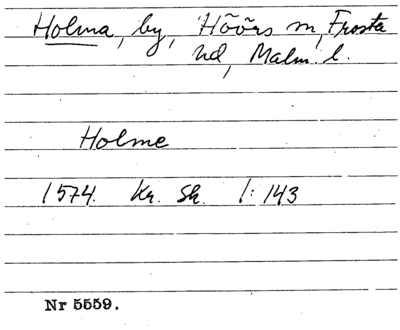 Holma, by, Höörs sn, Frosta
hd, Malm. l.
Holme
1574. Kr. Sk. 1:143
Nr 5559.